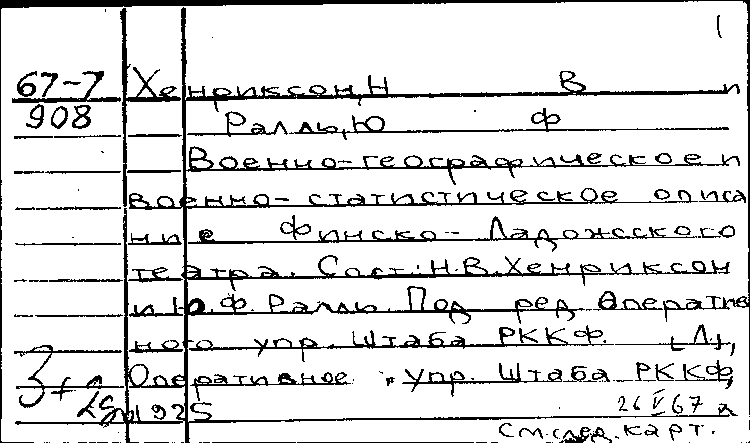 1
67-7 Хенриксон, Н В и
908 Ралль, Ю Ф
Военно-географическое и
военно-статистическое описа
ние Финско-Ладожсского
театра. Сост.: Н.В. Хенриксон
и Ю.Ф. Ралль. Под ред Оператив
ного упр. Штаба РККФ. [Л],
Оперативное упр. Штаба РККФ,
1925
3+2
26 V 67
см. след. карт.